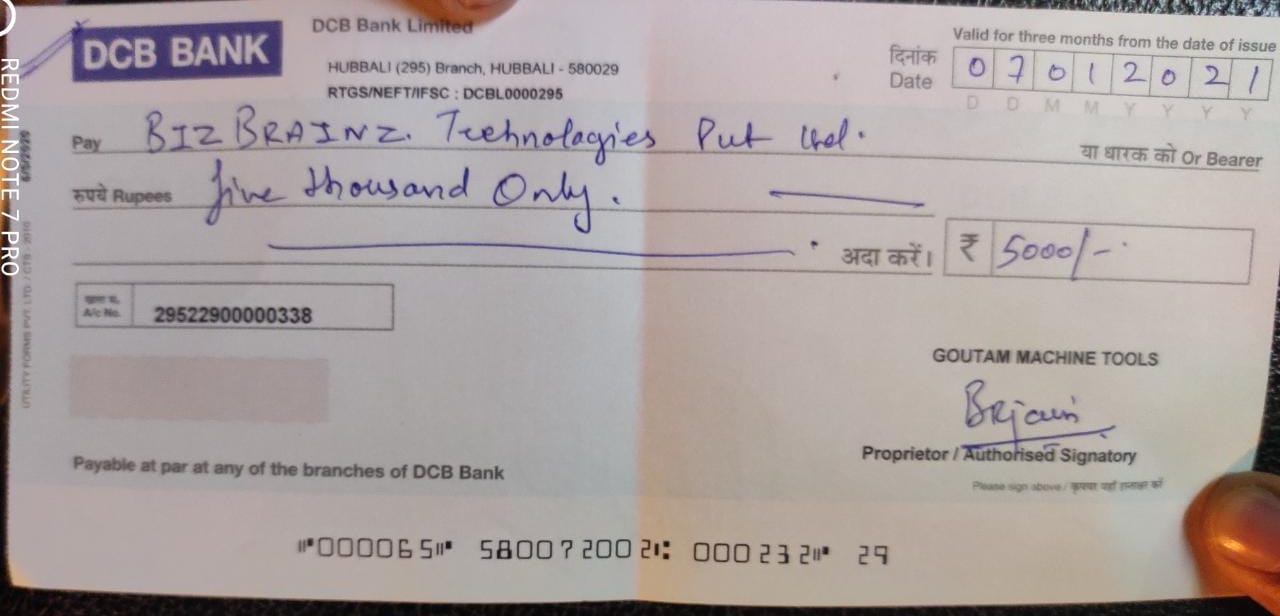 DCB BANK
DCB Bank Limited
HUBBALI (295) Branch, HUBBALI - 580029
RTGS/NEFT/IFSC : DCBL0000295
Valid for three months from the date of issue
दिनांक
Date 07012021
D D M M Y Y Y Y
Pay BIZ BRAINZ. Technologies Pvt Ltd.
या धारक को Or Bearer
रुपये Rupees five thousand Only.
अदा करें। ₹ 5000/-
A/c No. 29522900000338
GOUTAM MACHINE TOOLS
BRjain
Proprietor / Authorised Signatory
Please sign above /
Payable at par at any of the branches of DCB Bank
⑈000065⑈ 580072002⑆ 000232⑈ 29
UTILITY FORMS PVT. LTD. / CTS-2010
REDMI NOTE 7 PRO